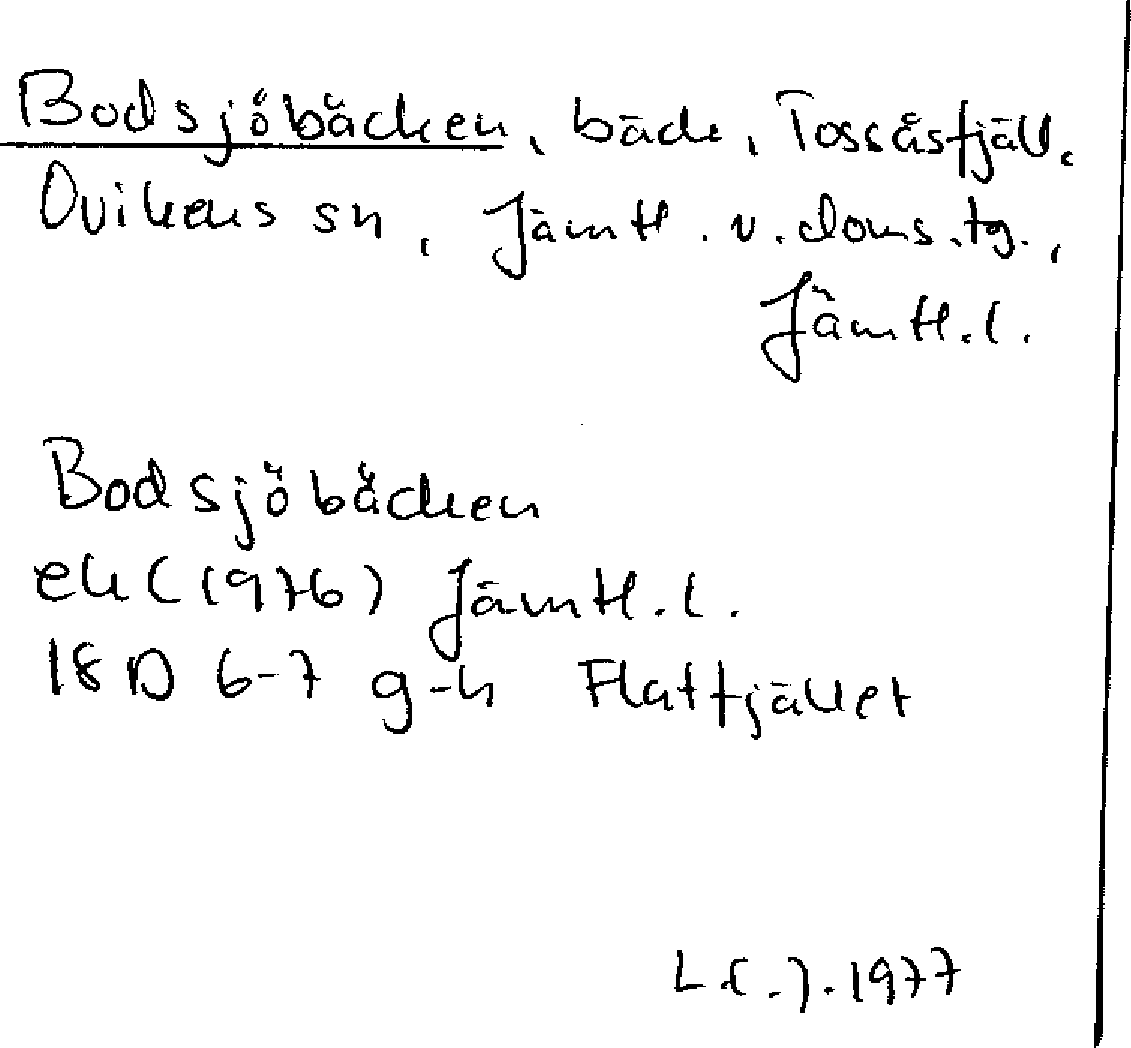 Bodsjöbäcken, bäck, Tossåsfjäll,
Ovikens sn, Jämtl. v. doms.tg.,
Jämtl.l.
Bodsjöbäcken
ek (1976) Jämtl.l.
18 D 6-7 g-h Flatfjället
1977